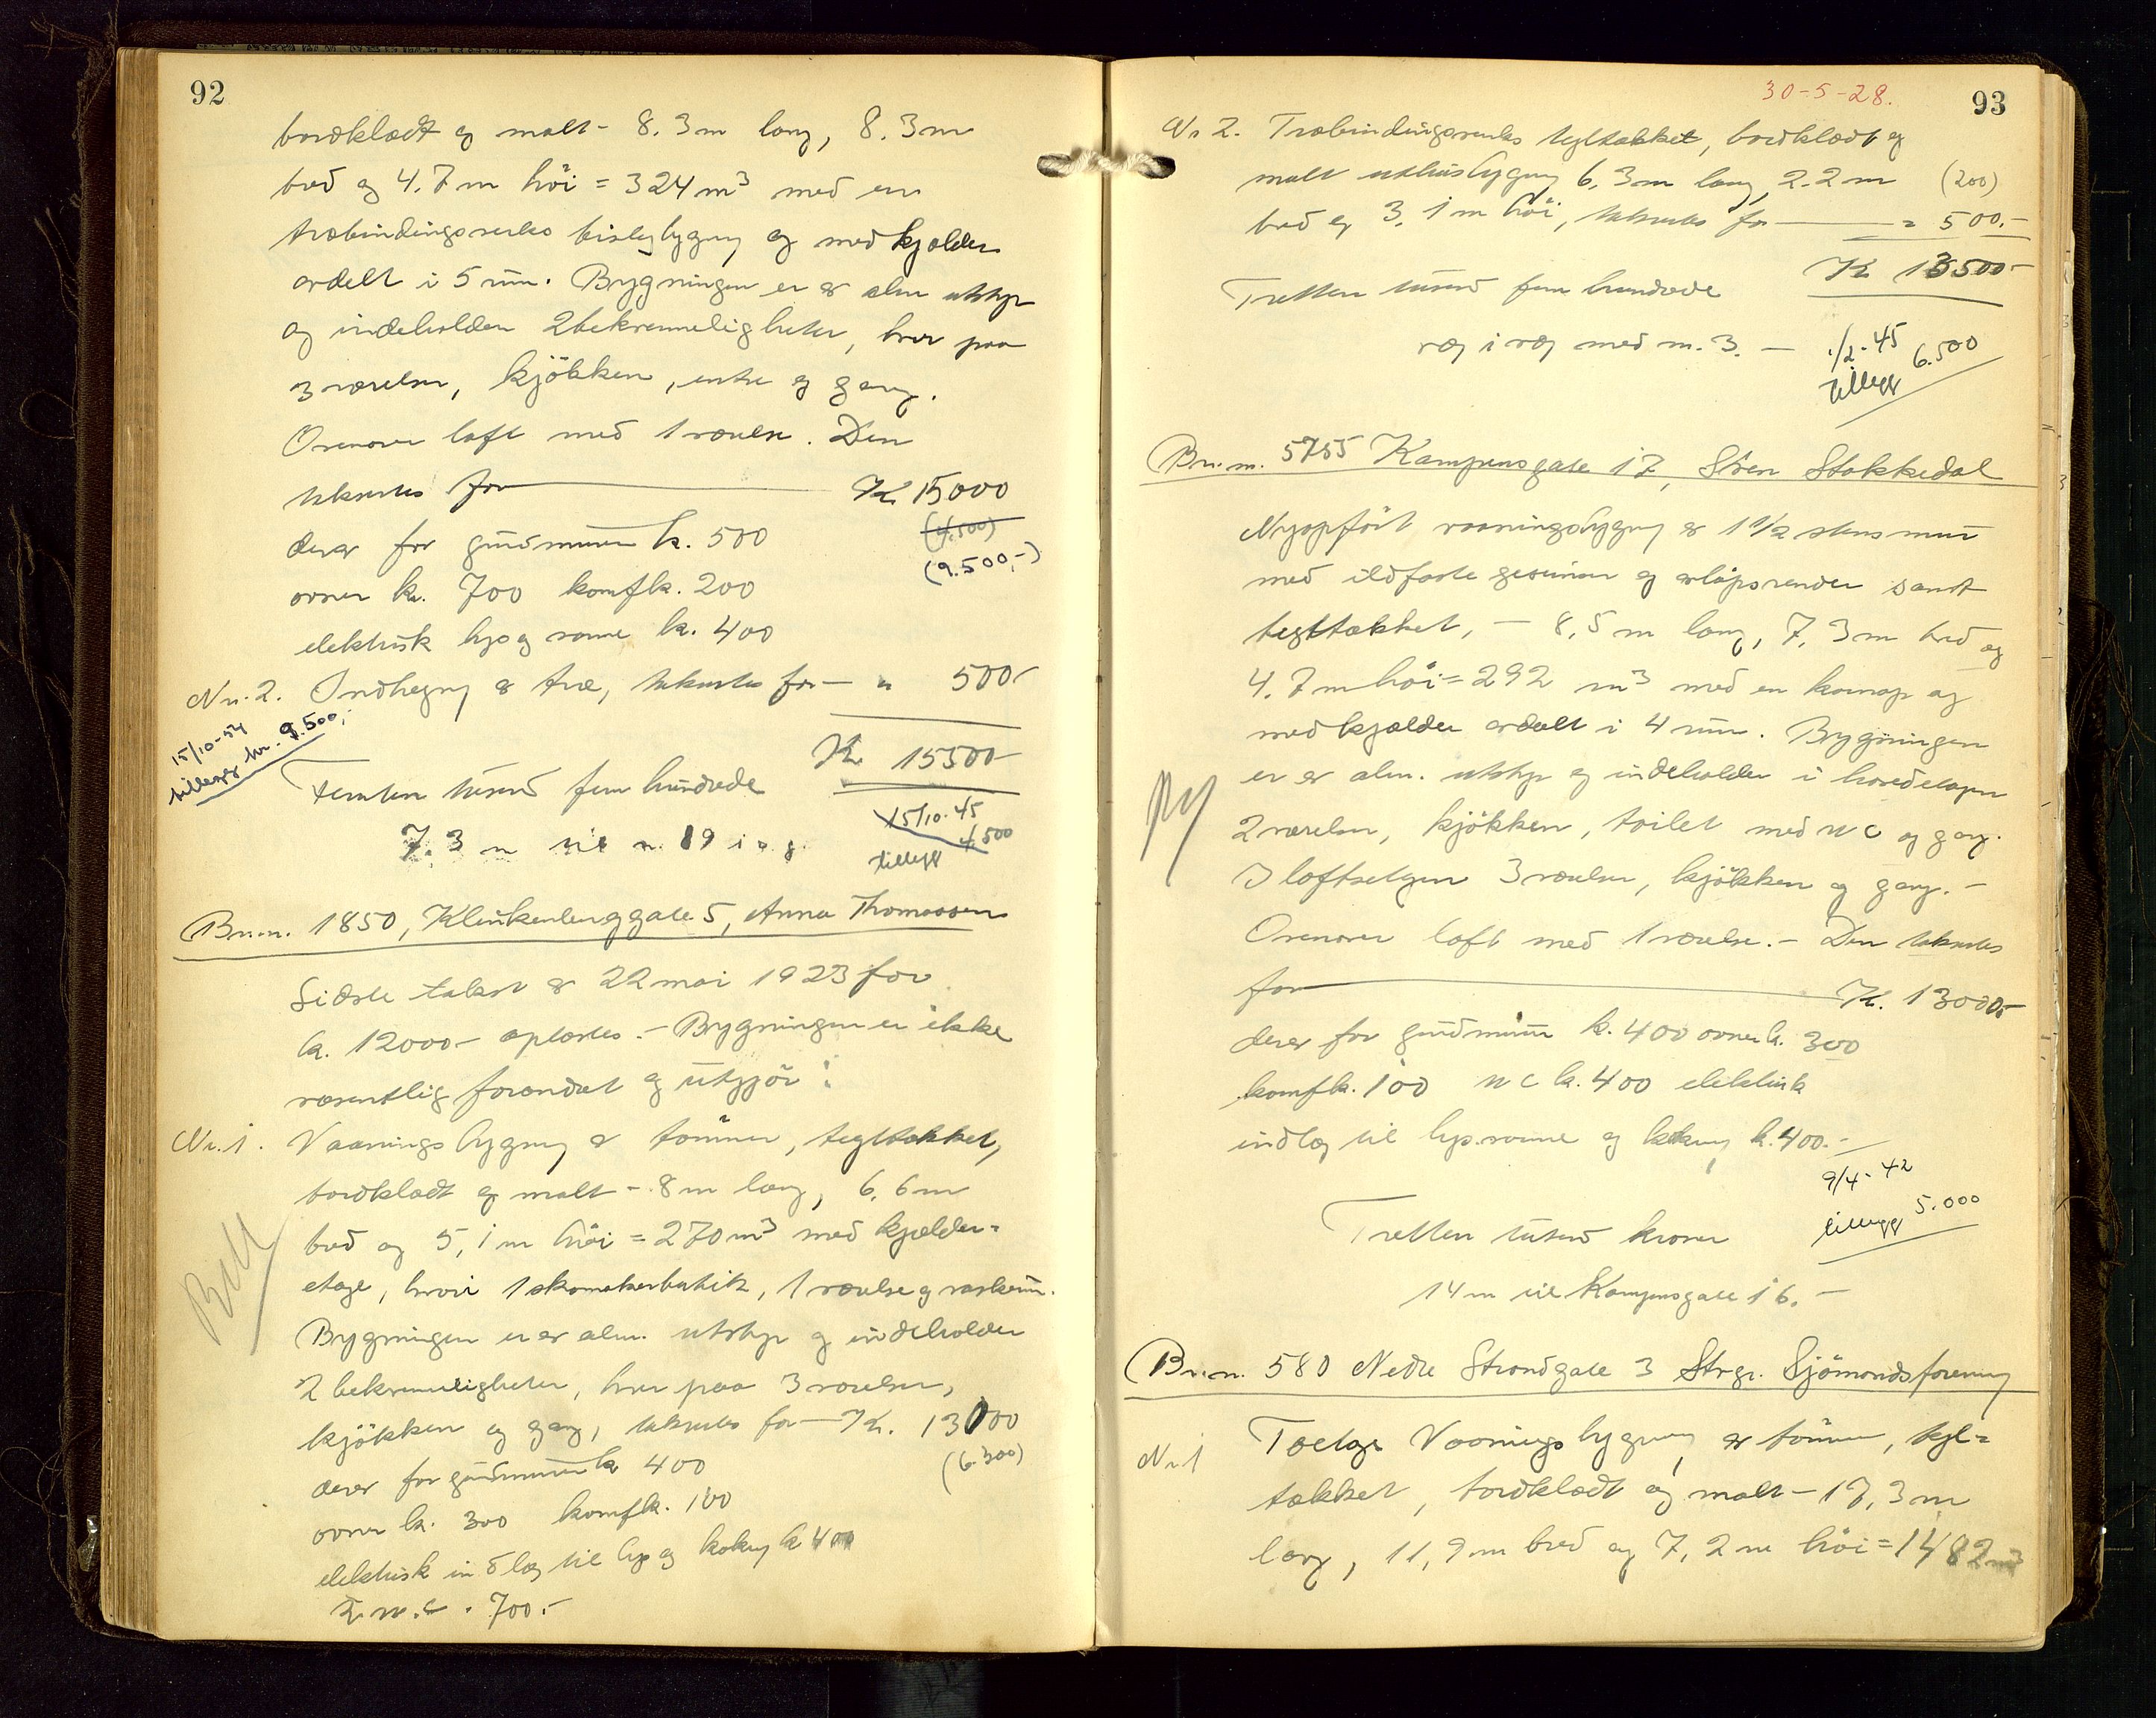 92
bordklædt og malt - 8.3m lang, 8.3m
bred og 4.7m höi = 324m³ med en
træbindingsverks bislagbygning og med kjælder
avdelt i 5 rum. Bygningen er av alm utstyr
og indeholder 2 bekvemmeligheter, hver paa
3 værelser, kjökken, entre og gang.
Ovenover loft med 1 værelse. Den
takseres for — K 15000
derav for grundmuren k. 500
(4.500)
(9.500,-)
ovner k. 700 komf k. 200
elektrisk lys og varme k. 400
Nr. 2. Indhegning av træ, takseres for — " 500-
15/10-54
tillegg kr. 9.500,-
K 15500-
Femten tusend fem hundrede
15/10-45
tillegg 4.500
7.3 m til n. 19 i o g.
Br.n. 1850, Klinkenberggate 5, Anna Thomassen
Sidste takst av 22 mai 1923 for
k. 12000- oplæstes. - Bygningen er ikke
væsentlig forandret og utgjör:
Nr. 1. Vaaningsbygning av tömmer, tegltækket,
bordklædt og malt - 8m lang, 6.6m
bred og 5,1m höi = 270m³ med kjælder-
etage, hvori 1 skomakerbutik, 1 værelse og vaskerum.
Bygningen er av alm. utstyr og indeholder
2 bekvemmeligheter, hver paa 3 værelser,
kjökken og gang, takseres for — K. 13000
(6.300)
derav for grundmuren k 400
ovner k. 300 komf k. 100
elektrisk indlæg til lys og kokning k 400
2 w.c. 700.-
30-5-28.
93
Nr 2. Træbindingsverks tegltækket, bordklædt og
malt uthusbygning 6,3m lang, 2.2m
(200)
bred og 3.1m höi, takseres for — " 500.-
K 13500-
Tretten tusend fem hundrede
væg i væg med nr. 3. —
1/2-45
tillegg 6.500
Br.n. 5755 Kampensgate 17, Sören Stokkedal
Nyopfört vaaningsbygning av 1 1/2 stens mur
med ildfaste gesimser og avløpsrender samt
tegltækket, - 8,5m lang, 7,3m bred og
4.7m höi = 292 m³ med en karnap og
med kjælder avdelt i 4 rum. Bygningen
er av alm. utstyr og indeholder i hovedetagen
Ny
2 værelser, kjökken, toilet med w c og gang.
I loftsetagen 3 værelser, kjökken og gang. -
Ovenover loft med 1 værelse. - Den takseres
for — K. 13000-
derav for grundmuren k. 400 ovner k. 300
komf k. 100 w c k. 400 elektrisk
indlæg til lys, varme og kokning k. 400.-
9/4-42
tillegg 5.000
Tretten tusend kroner
14m til Kampensgate 16. -
Br.n. 580 Nedre Strandgate 3 Strgr. Sjömandsforening
Nr 1 Toetages Vaaningsbygning av tömmer, tegl-
tækket, bordklædt og malt - 17,3m
lang, 11,9m bred og 7,2m höi = 1482m³